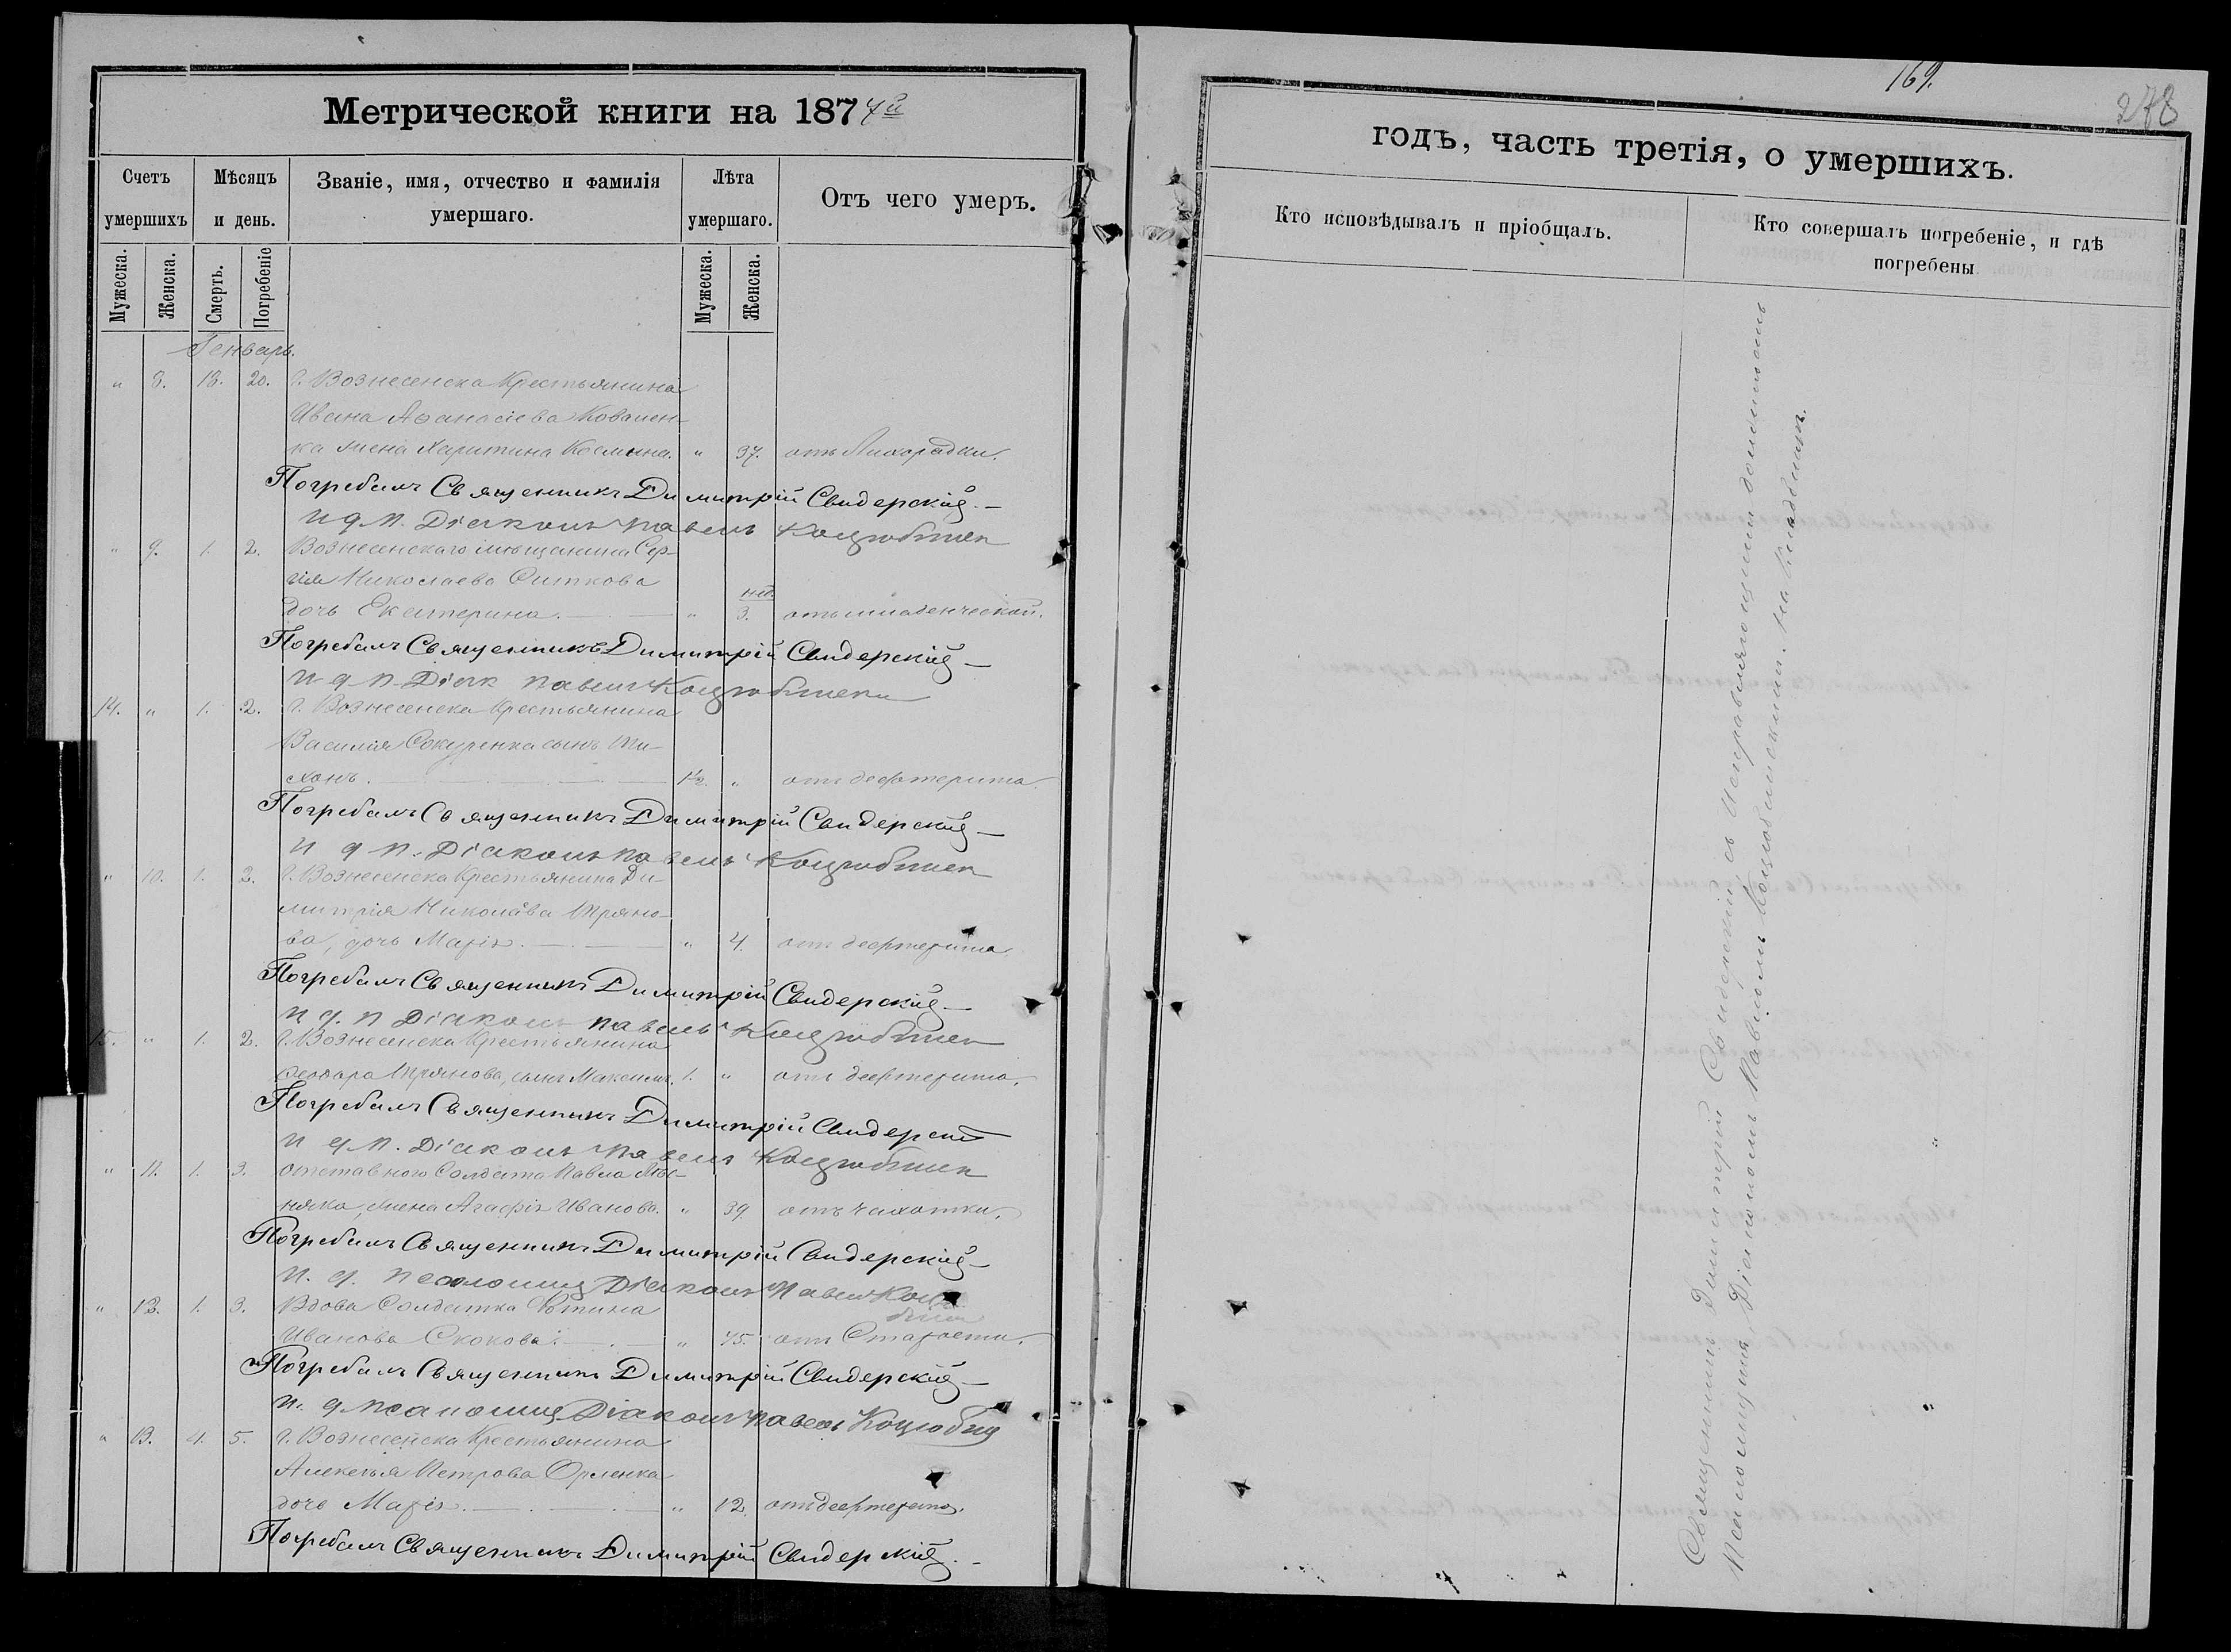 Метрической книги на 1877й
Счетъ умершихъ
Мѣсяцъ и день.
Званіе, имя, отчество и фамилія умершаго.
Лѣта умершаго.
Отъ чего умеръ.
Мужеска.
Женска.
Смерть.
Погребеніе
Мужеска.
Женска.
Генварь.
" 8. 18. 20. г. Вознесенска Крестьянина
Ивана Аѳанасіева Ковален-
ка жена Харитина Космина. " 37. отъ Лихорадки.
Погребалъ Священникъ Димитрій Свидерскій.
и д. п. Діаконъ Павелъ
" 9. 1. 2. Вознесенскаго мѣщанина Сер-
гія Николаева Ситкова
нед.
дочь Екатерина. " 3. отъ младенческой.
Погребалъ Священникъ Димитрій Свидерскій
и д. п. Діак Павелъ
14. " 1. 2. г. Вознесенска Крестьянина
Василія Сокуренка сынъ Ти-
хонъ. 1½. " отъ дефтерита
Погребалъ Священникъ Димитрій Свидерскій
и д. п. Діаконъ Павелъ
" 10. 1. 2. г. Вознесенска Крестьянина Ди-
митрія Николаева
ва, дочь Марія. " 4. отъ дефтерита
Погребалъ Священникъ Димитрій Свидерскій
и д. п Діаконъ Павелъ
15. " 1. 2. г. Вознесенска Крестьянина
Ѳеодора сынъ Максимъ. 1. " отъ дефтерита.
Погребалъ Священникъ Димитрій Свидерскій
и д. п. Діаконъ Павелъ
" 11. 1. 3. отставного Солдата Павла
няка, жена Агафія Иванова. " 39. отъ чахотки.
Погребалъ Священникъ Димитрій Свидерскій
и. д. псаломщ Діаконъ Павелъ
" 12. 1. 3. Вдова Солдатка
Иванова Скокова. " 75. отъ Старости.
Погребалъ Священникъ Димитрій Свидерскій
и. д. псаломщ Діаконъ Павелъ Коцюбин
" 13. 4. 5. г. Вознесенска Крестьянина
Алексѣя Петрова Орленка
дочь Марія. " 12. отъ дефтерита.
Погребалъ Священникъ Димитрій Свидерскій.
169.
278
годъ, часть третія, о умершихъ.
Кто исповѣдывалъ и пріобщалъ.
Кто совершалъ погребеніе, и гдѣ погребены
Священникъ Димитрій Свидерскій, съ Исправляющимъ должность
Псаломщика, Діакономъ Павломъ Коцюбинскимъ. на кладбищѣ.